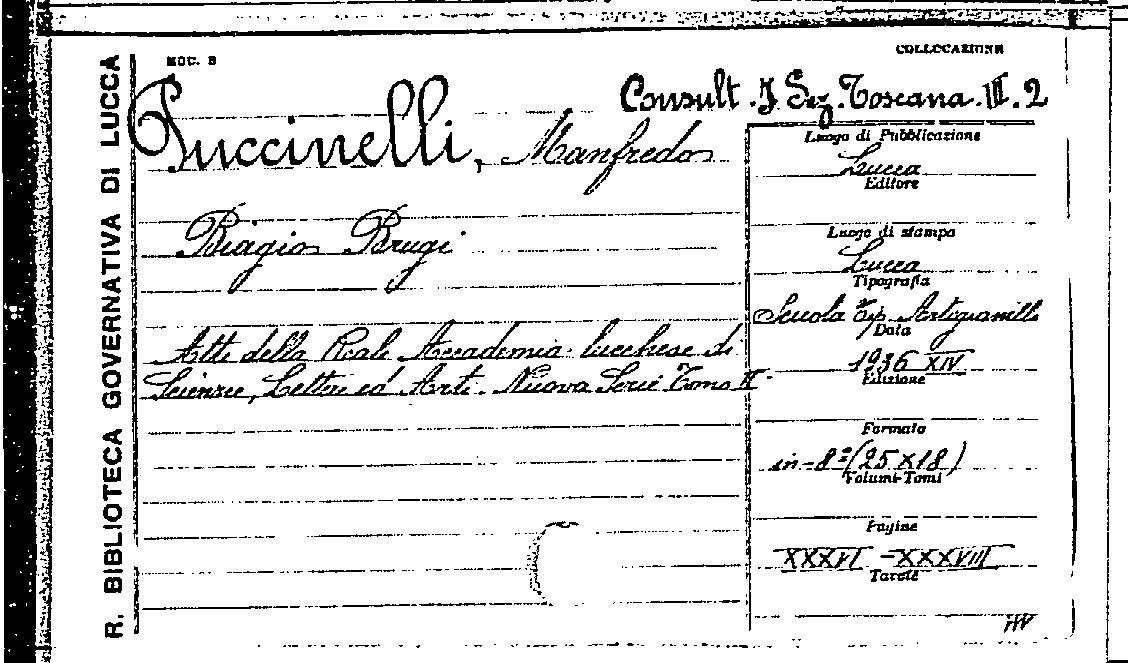 R. BIBLIOTECA GOVERNATIVA DI LUCCA
MOD. B
COLLOCAZIONE
Consult. I Sez. Toscana. III. 2
Puccinelli, Manfredo
Biagio Brugi
Atti della Reale Accademia lucchese di
Scienze, Lettere ed Arti. Nuova Serie Tomo II
Luogo di Pubblicazione
Lucca
Editore
Luogo di stampa
Lucca
Tipografia
Scuola Tip. Artigianelli
Data
1936 XIV
Edizione
Formato
in-8º (25X18)
Volumi-Tomi
Pagine
XXXVI - XXXVIII
Tavole